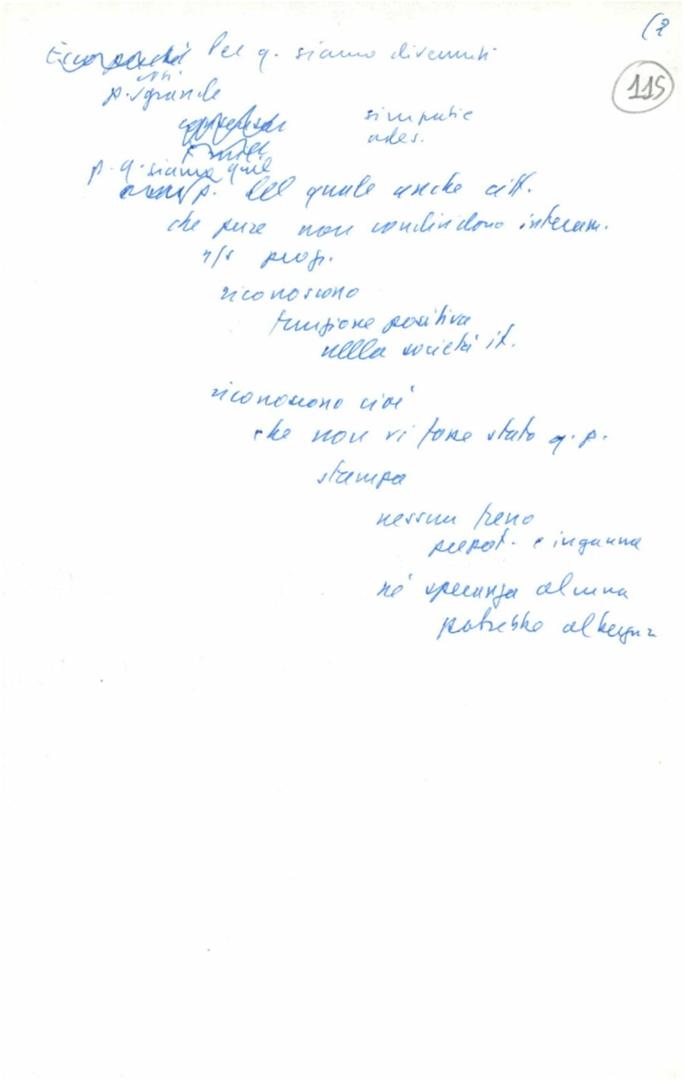 (2
115
Per q. siamo divenuti
così
p. grande
simpatie
ades.
p. q. siamo quel
p. del quale anche citt.
che pure non condividono interam.
n/s prog.
riconoscono
funzione positiva
nella società it.
riconoscono cioè
che non vi fosse stato q. p.
stampa
nessun freno
prepot. e inganna
né speranza alcuna
potrebbe albergar